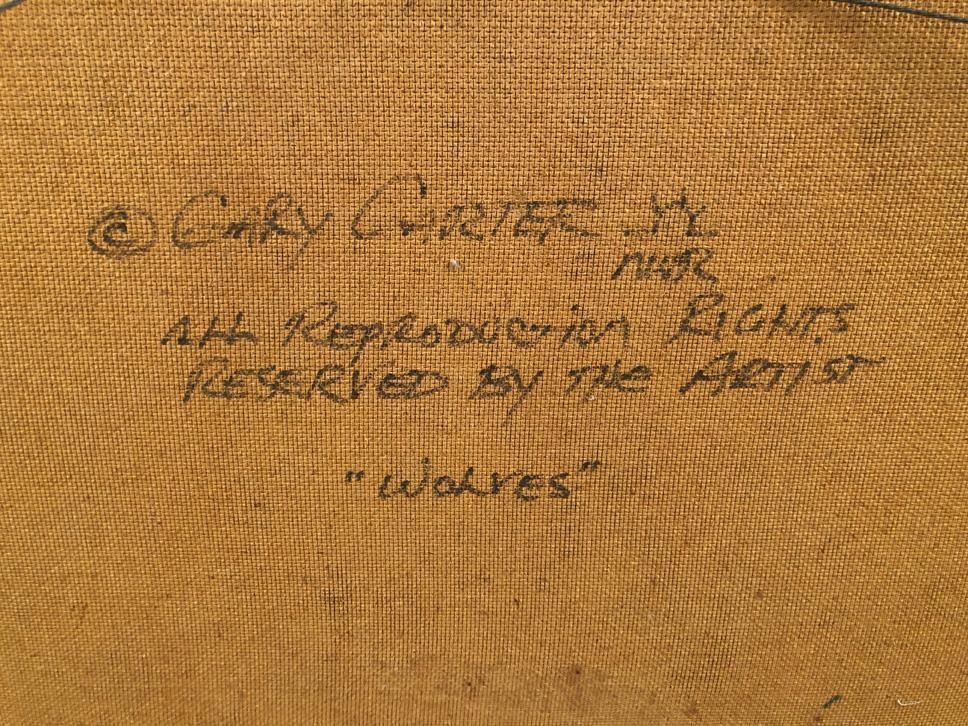 © GARY CARTER
ALL REPRODUCTION RIGHTS
RESERVED BY THE ARTIST
"WOLVES"